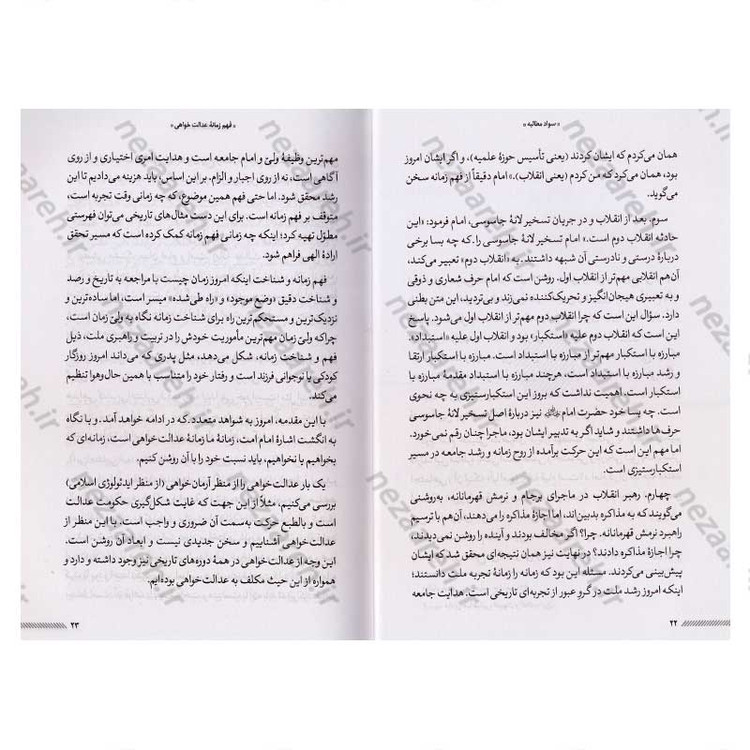 « سواد مطالبه »
همان می‌کردم که ایشان کردند (یعنی تأسیس حوزهٔ علمیه)، و اگر ایشان امروز
بود، همان می‌کرد که من کردم (یعنی انقلاب).» امام دقیقاً از فهم زمانه سخن
می‌گوید.
سوم. بعد از انقلاب و در جریان تسخیر لانهٔ جاسوسی، امام فرمود: «این
حادثه انقلاب دوم است.» امام تسخیر لانهٔ جاسوسی را، که چه بسا برخی
دربارهٔ درستی و نادرستی آن شبهه داشتند، به «انقلاب دوم» تعبیر می‌کند،
آن‌هم انقلابی مهم‌تر از انقلاب اول. روشن است که امام حرف شعاری و ذوقی
و به تعبیری هیجان‌انگیز و تحریک‌کننده نمی‌زند و بی‌تردید، این متن بطنی
دارد. سؤال این است که چرا انقلاب دوم مهم‌تر از انقلاب اول می‌شود. پاسخ
این است که انقلاب دوم علیه «استکبار» بود و انقلاب اول علیه «استبداد»؛
مبارزه با استکبار مهم‌تر از مبارزه با استبداد است. مبارزه با استکبار ارتقا
و رشد مبارزه با استبداد است، هرچند مبارزه با استبداد مقدمهٔ مبارزه با
استکبار است. اهمیت نداشت که بروز این استکبارستیزی به چه نحوی
است. چه بسا خود حضرت امام نیز دربارهٔ اصل تسخیر لانهٔ جاسوسی
حرف‌ها داشتند و شاید اگر به تدبیر ایشان بود، ماجرا چنان رقم نمی‌خورد.
اما مهم این است که این حرکت برآمده از روح زمانه و رشد جامعه در مسیر
استکبارستیزی است.
چهارم. رهبر انقلاب در ماجرای برجام و نرمش قهرمانانه، به‌روشنی
می‌گویند که به مذاکره بدبین‌اند، اما اجازهٔ مذاکره را می‌دهند، آن‌هم با ترسیم
راهبرد نرمش قهرمانانه. چرا؟ اگر مخالف بودند و آینده را روشن نمی‌دیدند،
چرا اجازهٔ مذاکره دادند؟ در نهایت نیز همان نتیجه‌ای محقق شد که ایشان
پیش‌بینی می‌کردند. مسئله این بود که زمانه را زمانهٔ تجربه ملت دانستند؛
اینکه امروز رشد ملت در گرو عبور از تجربه‌ای تاریخی است. هدایت جامعه
۲۲
« فهم زمانهٔ عدالت خواهی »
مهم‌ترین وظیفهٔ ولیّ و امام جامعه است و هدایت امری اختیاری و از روی
آگاهی است، نه از روی اجبار و الزام. بر این اساس، باید هزینه می‌دادیم تا این
رشد محقق شود. اما حتی فهم همین موضوع، که چه زمانی وقت تجربه است،
متوقف بر فهم زمانه است. برای این دست مثال‌های تاریخی می‌توان فهرستی
مطوّل تهیه کرد؛ اینکه چه زمانی فهم زمانه کمک کرده است که مسیر تحقق
ارادهٔ الهی فراهم شود.
فهم زمانه و شناخت اینکه امروز زمان چیست با مراجعه به تاریخ و رصد
و شناخت دقیق «وضع موجود» و «راه طی‌شده» میسر است، اما ساده‌ترین و
نزدیک‌ترین و مستحکم‌ترین راه برای شناخت زمانه نگاه به ولیّ زمان است،
چراکه ولیّ زمان مهم‌ترین مأموریت خودش را در تربیت و راهبری ملت، ذیل
فهم و شناخت زمانه، شکل می‌دهد، مثل پدری که می‌داند امروز روزگار
کودکی یا نوجوانی فرزند است و رفتار خود را متناسب با همین حال‌وهوا تنظیم
می‌کند.
با این مقدمه، امروز به شواهد متعدد، که در ادامه خواهد آمد، و با نگاه
به انگشت اشارهٔ امام امت، زمانهٔ ما زمانهٔ عدالت‌خواهی است، زمانه‌ای که
بخواهیم یا نخواهیم، باید نسبت خود را با آن روشن کنیم.
یک بار عدالت‌خواهی را از منظر آرمان‌خواهی (از منظر ایدئولوژی اسلامی)
بررسی می‌کنیم، مثلاً از این جهت که غایت شکل‌گیری حکومت عدالت
است و بالطبع حرکت به‌سمت آن ضروری و واجب است. با این منظر از
عدالت‌خواهی آشناییم و سخن جدیدی نیست و ابعاد آن روشن است.
این وجه از عدالت‌خواهی در همهٔ دوره‌های تاریخی نیز وجود داشته و دارد و
همواره از این حیث مکلف به عدالت‌خواهی بوده‌ایم.
۲۳
nezaareh.ir